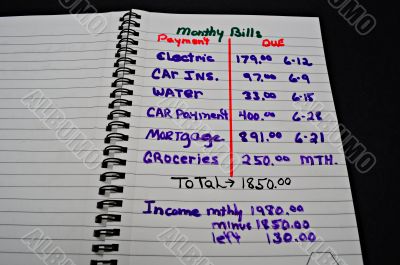 Monthy Bills
Payment Due
Electric 179.00 6-12
CAR INS. 97.00 6-9
WATER 33.00 6-15
CAR PAYMENT 400.00 6-28
MORTgAge 891.00 6-21
GROCERIES 250.00 MTH.
TOTAL→ 1850.00
Income mthly 1980.00
minus 1850.00
left 130.00